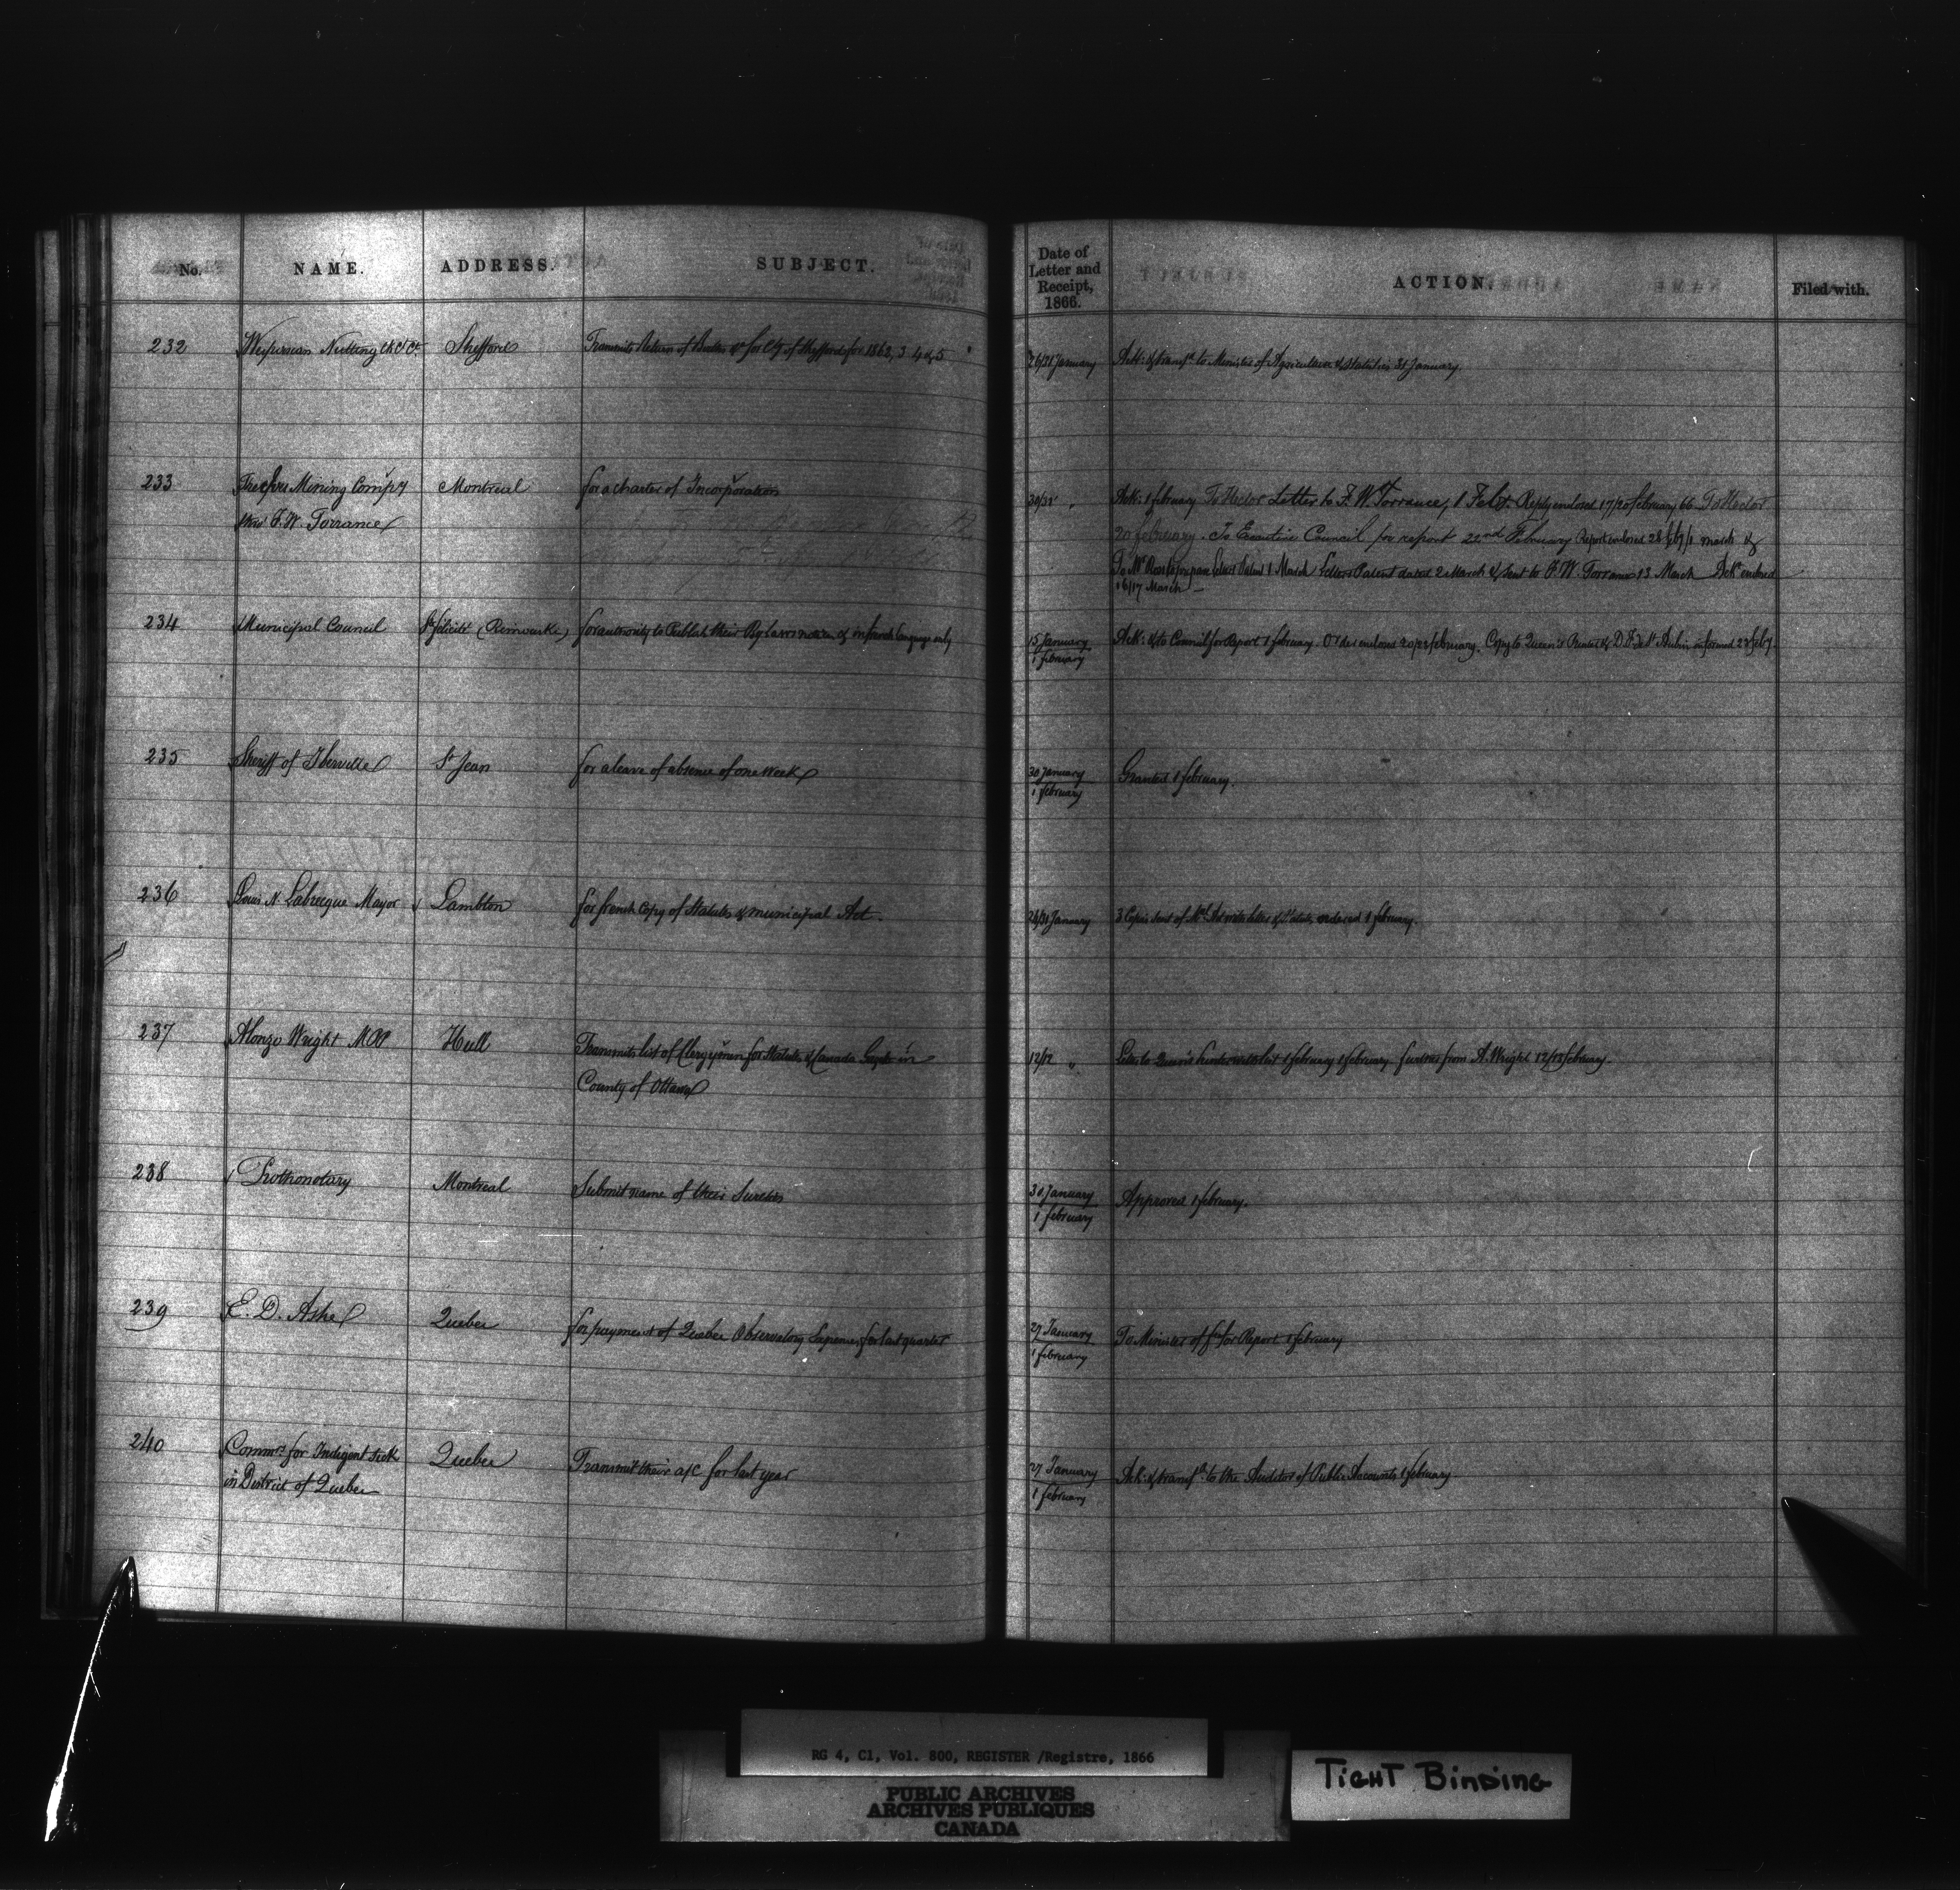 No. NAME. ADDRESS. SUBJECT. Date of Letter and Receipt, 1866. ACTION. Filed with.
232 Nutting Shefford Transmits Return of for Cty of Shefford for 1862, 3 4 & 5 26/31 January Ack: & transfd to Minister of Agriculture & Statistics 31 January
233 Mining Compy Montreal for a charter of Incorporation 30/31 " Ack: 1 february To Hector Letter to F. W. Torrance, 1 Feby. Reply enclosed 17/20 february 66 To Hector
F. W. Torrance 20 february. To Executive Council for report 22nd February Report enclosed 28 feby/1 march &
To Mr Ross to prepare Letters Patent 1 March Letters Patent dated 2 March & sent to F. W. Torrance 13 March Ack enclosed
16/17 March
234 Municipal Council (Rimouski) for authority to Publish their By Laws & in french language only 15 January Ack: & to Council for Report 1 february Order enclosed 20/23 february. Copy to Queen's Printer & St Aubin informed 23 feby.
1 february
235 Sheriff of Iberville St Jean for a leave of absence of one week 30 January Granted 1 february.
1 february
236 Louis N. Labrecque Mayor Lambton for french Copy of Statutes & municipal Act. 24/31 January 3 Copies sent of Act with letter & Statutes ordered 1 february.
237 Alonzo Wright MPP Hull Transmits list of Clergymen for Statutes & Canada in 12/12 " Letter to Queen's Printer with list 1 february further from A. Wright 12/13 february.
County of Ottawa
238 Prothonotary Montreal Submit name of their Sureties 30 January Approved 1 february.
1 february
239 E. D. Ashe Quebec for payment of Quebec Observatory Expenses for last quarter 27 January To Minister of for Report 1 february
1 february
240 Commrs for Indigent sick Quebec Transmit their a/c for last year 27 January Ack: & transfd to the Auditor of Public Accounts 1 february.
in District of Quebec 1 february
RG 4, C1, Vol. 800, REGISTER /Registre, 1866
PUBLIC ARCHIVES
ARCHIVES PUBLIQUES
CANADA
TIGHT BINDING